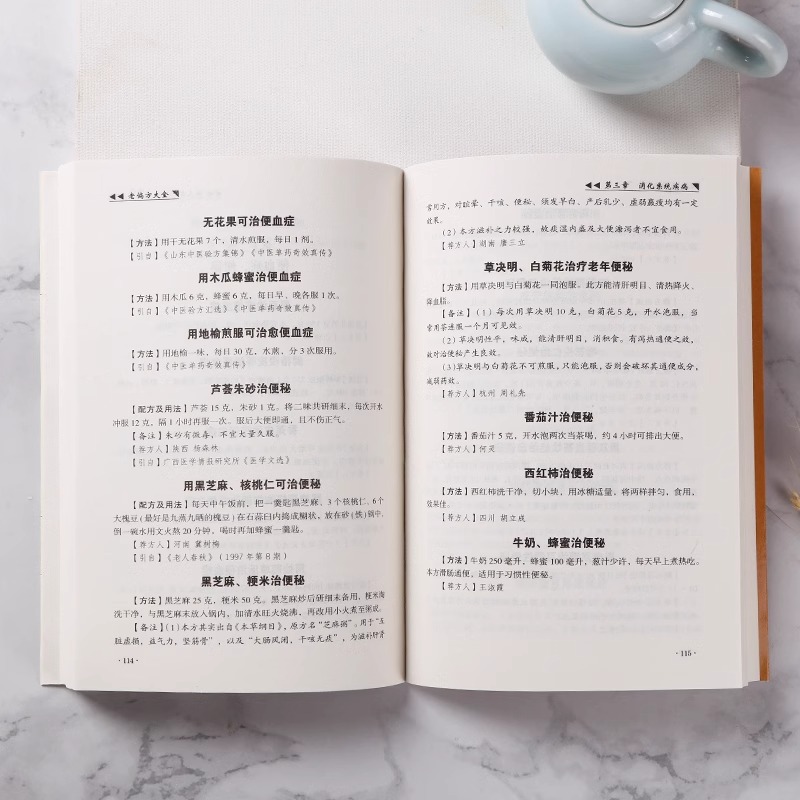 老偏方大全
无花果可治便血症
【方法】用干无花果7个，清水煎服，每日1剂。
【引自】《山东中医验方集锦》《中医单药奇效真传》
用木瓜蜂蜜治便血症
【方法】用木瓜6克，蜂蜜6克，每日早、晚各服1次。
【引自】《中医验方汇选》《中医单药奇效真传》
用地榆煎服可治愈便血症
【方法】用地榆一味，每日30克，水煎，分3次服用。
【引自】《中医单药奇效真传》
芦荟朱砂治便秘
【配方及用法】芦荟15克，朱砂1克。将二味共研细末，每次开水
冲服12克，隔1小时再服一次。服后大便即通，且不伤正气。
【备注】朱砂有微毒，不宜大量久服。
【荐方人】陕西 杨森林
【引自】广西医学情报研究所《医学文选》
用黑芝麻、核桃仁可治便秘
【配方及用法】每天中午饭前，把一羹匙黑芝麻、3个核桃仁、6个
大槐豆（最好是九蒸九晒的槐豆）在石蒜臼内捣成糊状，放在砂（铁）锅中，
倒一碗水用文火熬20分钟，喝时再加蜂蜜一羹匙。
【荐方人】河南 冀树梅
【引自】《老人春秋》（1997年第8期）
黑芝麻、粳米治便秘
【方法】黑芝麻25克，粳米50克。黑芝麻炒后研细末备用，粳米淘
洗干净，与黑芝麻末放入锅内，加清水旺火烧沸，再改用小火煮至粥成。
【备注】（1）本方其实出自《本草纲目》，原方名“芝麻粥”。用于“五
脏虚损，益气力，坚筋骨”，以及“大肠风闭，干咳无痰”，为滋补肝肾
·114·
第三章 消化系统疾病
常用方，对眩晕、干咳、便秘、须发早白、产后乳少、虚弱羸瘦均有一定
效果。
（2）本方滋补之力较强，故痰湿内盛及大便溏泻者不宜食用。
【荐方人】湖南 唐三立
草决明、白菊花治疗老年便秘
【方法】用草决明与白菊花一同泡服。此方能清肝明目、清热降火、
降血脂。
【备注】（1）每次用草决明10克，白菊花5克，开水泡服，当
常用茶连服一个月可见效。
（2）草决明性平，味咸，能清肝明目，消积食。有泻热通便之效，
故对治便秘产生良效。
（3）草决明与白菊花不可煎服，只能泡服，否则会破坏其通便成分，
减弱药效。
【荐方人】杭州 周礼先
番茄汁治便秘
【方法】番茄汁5克，开水泡两次当茶喝，约4小时可排出大便。
【荐方人】何灵
西红柿治便秘
【方法】西红柿洗干净，切小块，用冰糖适量，将两样拌匀，食用，
效果佳。
【荐方人】四川 胡立成
牛奶、蜂蜜治便秘
【方法】牛奶250毫升，蜂蜜100毫升，葱汁少许，每天早上煮热吃。
本方滑肠通便。适用于习惯性便秘。
【荐方人】王淑霞
·115·